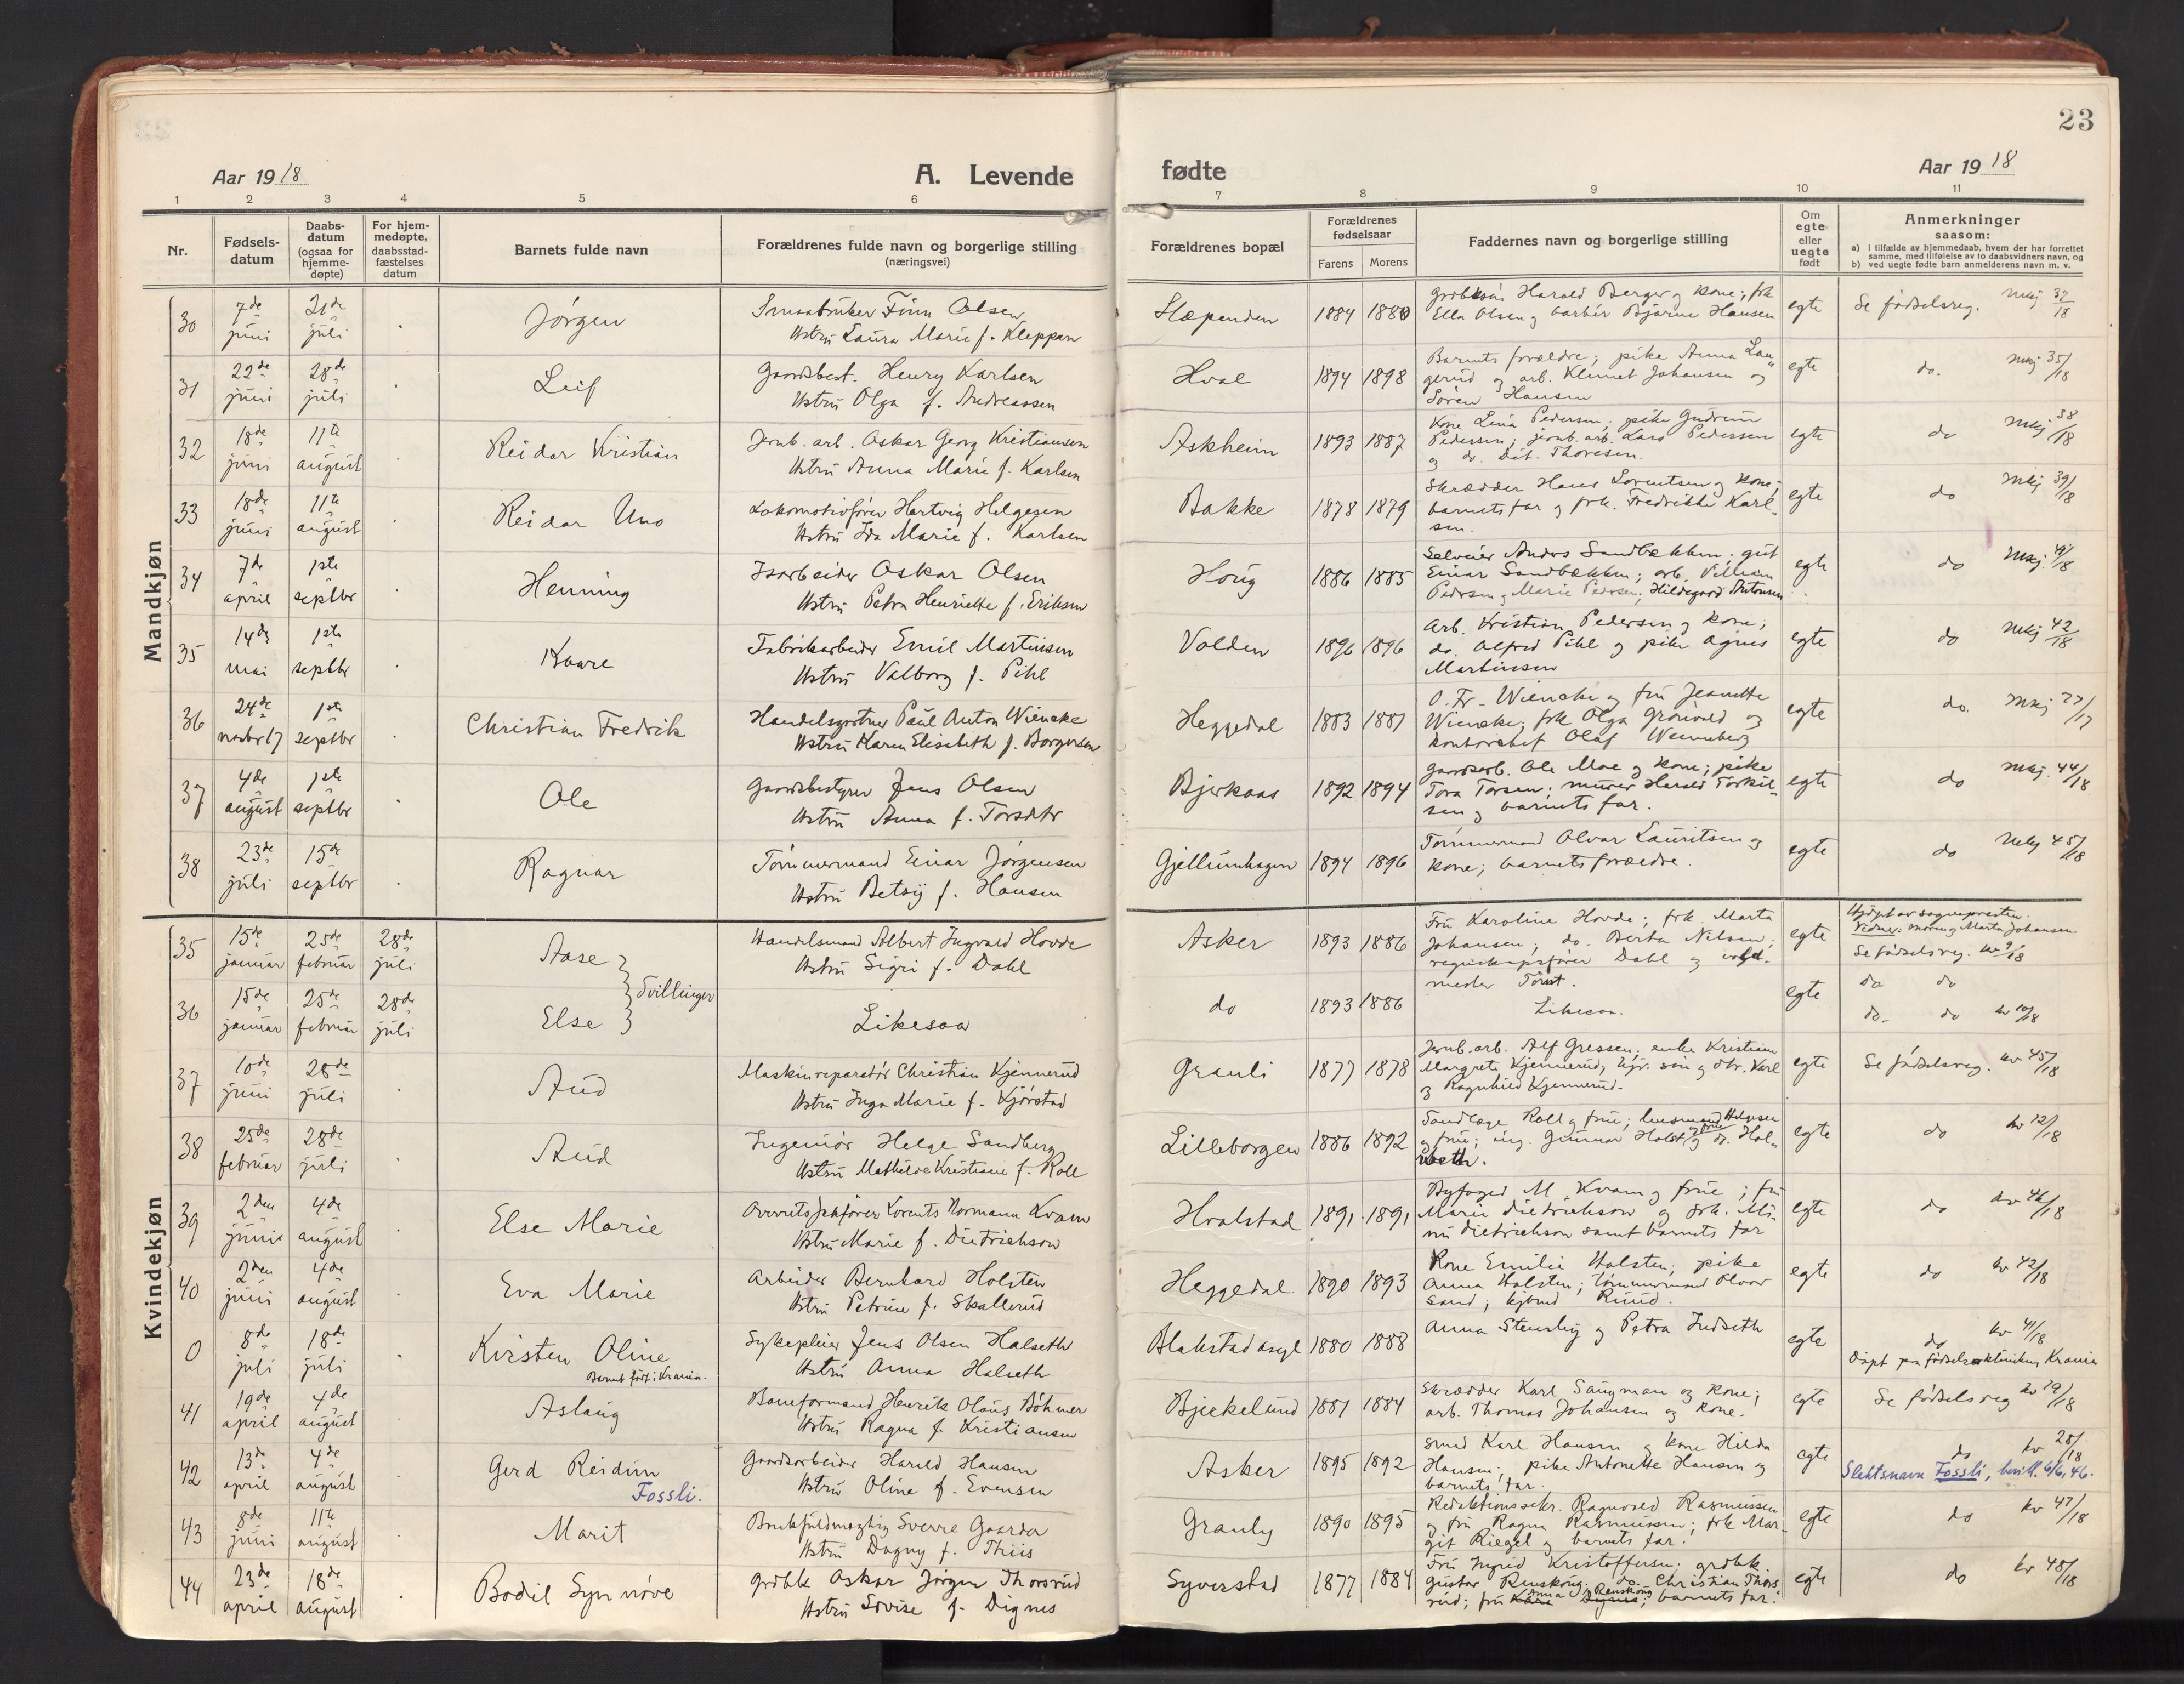 23
Aar 1918
A. Levende fødte
Aar 1918
1 2 3 4 5 6 7 8 9 10 11
Nr.
Fødsels-
datum
Daabs-
datum
(ogsaa for
hjemme-
døpte)
For hjem-
medøpte,
daabsstad-
fæstelses
datum
Barnets fulde navn
Forældrenes fulde navn og borgerlige stilling
(næringsvei)
Forældrenes bopæl
Forældrenes
fødselsaar
Farens Morens
Faddernes navn og borgerlige stilling
Om
egte
eller
uegte
født
Anmerkninger
saasom:
a) i tilfælde av hjemmedaab, hvem der har forrettet
samme, med tilføielse av to daabsvidners navn, og
b) ved uegte fødte barn anmelderens navn m. v.
Mandkjøn
30 7de juni 21de juli Jørgen
Smaabruker Finn Olsen
Hstru Laura Marie f. Kleppan
Slæpenden 1884 1880
Harald Berger og kone; frk
Ella Olsen og barbér Bjarne Hansen
egte Se fødselsreg. mkj 37/18
31 22de juni 28de juli Leif
Gaardsbest. Henry Karlsen
Hstru Olga f. Andreassen
Hval 1894 1898
Barnets forældre; pike Anna Lau
gerud og arb. Klemet Johansen og
Søren Hansen
egte do. mkj 35/18
32 18de juni 11te august Reidar Kristian
Jernb. arb. Oskar Georg Kristiansen
Hstru Anna Marie f. Karlsen
Askheim 1893 1887
Kone Lina Pedersen; pike Gudrun
Pedersen; jernb. arb. Lars Pedersen
og do. Thoresen.
egte do mkj 38/18
33 18de juni 11te august Reidar Uno
Lokomotivfører Hartvig Helgesen
Hstru Ida Marie f. Karlsen
Bakke 1878 1879
Skrædder Hans Lorentsen og kone;
barnets far og frk. Fredrikke Karl-
sen.
egte do mkj 39/18
34 7de april 1ste septbr Henning
Isarbeider Oskar Olsen
Hstru Petra Henriette f. Eriksen
Houg 1886 1885
Selveier Anders Sandbækken; gut
Einar Sandbækken; arb. Villiam
Pedersen og Marie Pedersen; Hildegard Antonsen
egte do mkj
35 14de mai 1ste septbr Kaare
Fabrikarbeider Emil Martinsen
Hstru Valborg f. Pihl
Valden 1896 1896
Arb. Kristian Pedersen og kone;
do. Alfred Pihl og pike Agnes
Martinsen
egte do mkj 42/18
36 24de novbr 17 1ste septbr Christian Fredrik
Handelsgartner Paul Anton Wiencke
Hstru Karen Elisabeth f. Borgersen
Heggedal 1883 1881
O. Fr. Wiencke og fru Jeanette
Wiencke; frk Olga Grönvold og
kontorchef Olaf Wennberg
egte do. mkj 77/17
37 4de august 1ste septbr Ole
Gaardsbestyrer Jens Olsen
Hstru Anna f. Torsdtr
Bjerkaas 1892 1894
Gaardsarb. Ole Moe og kone; pike
Tora Torsen; murer Harald Torkil-
sen og barnets far.
egte do mkj. 44/18
38 23de juli 15de septbr Ragnar
Tømmermand Einar Jørgensen
Hstru Betsy f. Hansen
Gjellumhagen 1894 1896
Tømmermand Olvar Lauritsen og
kone; barnets forældre.
egte do mkj 45/18
Kvindekjøn
35 15de januar 25de februar 28de juli Aase
Tvillinger
Handelsmand Albert Ingvald Hovde
Hstru Sigri f. Dahl
Asker 1893 1886
Fru Karoline Hovde; frk. Marta
Johansen; do. Berta Nilsen;
regnskapsfører Dahl og
mester Torst.
egte Hjdøpt av sognepresten.
Vidner: moren og Marta Johansen
Se fødselsreg. kv 9/18
36 15de januar 25de februar 28de juli Else
Likesaa
do 1893 1886 Likesaa. egte do do
do. do kv 10/18
37 10de juni 28de juli Aud
Maskinreparatør Christian Kjennerud
Hstru Inga Marie f. Kjörstad
Grauli 1877 1878
Jernb. arb. Alf Gressen; enke Kristiane
Margrete Kjennerud, hjv. søn og dtr. Karl
og Ragnhild Kjennerud.
egte Se fødselsreg. kv 45/18
38 25de februar 28de juli Aud
Ingeniør Helge Sandberg
Hstru Mathilde Kristiane f. Roll
Lilleborgen 1886 1892
Tandlæge Roll og frue; lensmand Helgesen
og frue; ing. Gunnar Holst og frue
egte do kv 12/18
39 2den juni 4de august Else Marie
Overretssakfører Lorents Normann Kvam
Hstru Marie f. Dietrichson
Hvalstad 1891 1891
Byfoged M. Kvam og frue; fru
Marie Dietrichson og frk. Mi-
mi Dietrichson samt barnets far
egte do kv 46/18
40 2den juni 4de august Eva Marie
Arbeider Bernhard Holsten
Hstru Petrine f. Skallerud
Heggedal 1890 1893
Kone Emilie Holsten; pike
Anna Holsten; tømmermand Olvar
Sand; Ruud.
egte do kv 42/18
0 8de juli 18de juli Kirsten Oline
Barnet født i Krania.
Sykepleier Jens Olsen Halseth
Hstru Anna Halseth
Blakstad asyl 1880 1888
Anna Stensby og Petra Indseth
egte do kv 41/18
Døpt paa fødselsklinikken Krania
41 19de april 4de august Aslaug
Baneformand Henrik Olaus Böhmer
Hstru Ragna f. Kristiansen
Bjerkelund 1881 1884
Skrædder Karl Saugman og kone;
arb. Thomas Johansen og kone.
egte Se fødselsreg kv 29/18
42 13de april 4de august Gerd Reidun
Fossli.
Gaardsarbeider Harald Hansen
Hstru Oline f. Evensen
Asker 1895 1892
Smed Karl Hansen og kone Hilda
Hansen; pike Antonette Hansen og
barnets far.
egte do kv 28/18
Slektsnavn Fossli, bevill. 6/6. 46.
43 8de juni 11te august Marit
Brukfuldmægtig Sverre Gaarder
Hstru Dagny f. Thiis
Grauly 1890 1895
Redaktionssekr. Ragnvald Rasmussen
og fru Ragna Rasmussen; frk Mar-
git Riegel og barnets far.
egte do kv 47/18
44 23de april 18de august Bodil Synnöve
Grdbk Oskar Jørgen Thorsrud
Hstru Lovise f. Dignes
Syverstad 1877 1884
Fru Ingrid Kristoffersen; grdbk.
Gustav Renskoug; do. Christian Thors
rud; fru Anna Renskoug; barnets far.
egte do kv 48/18